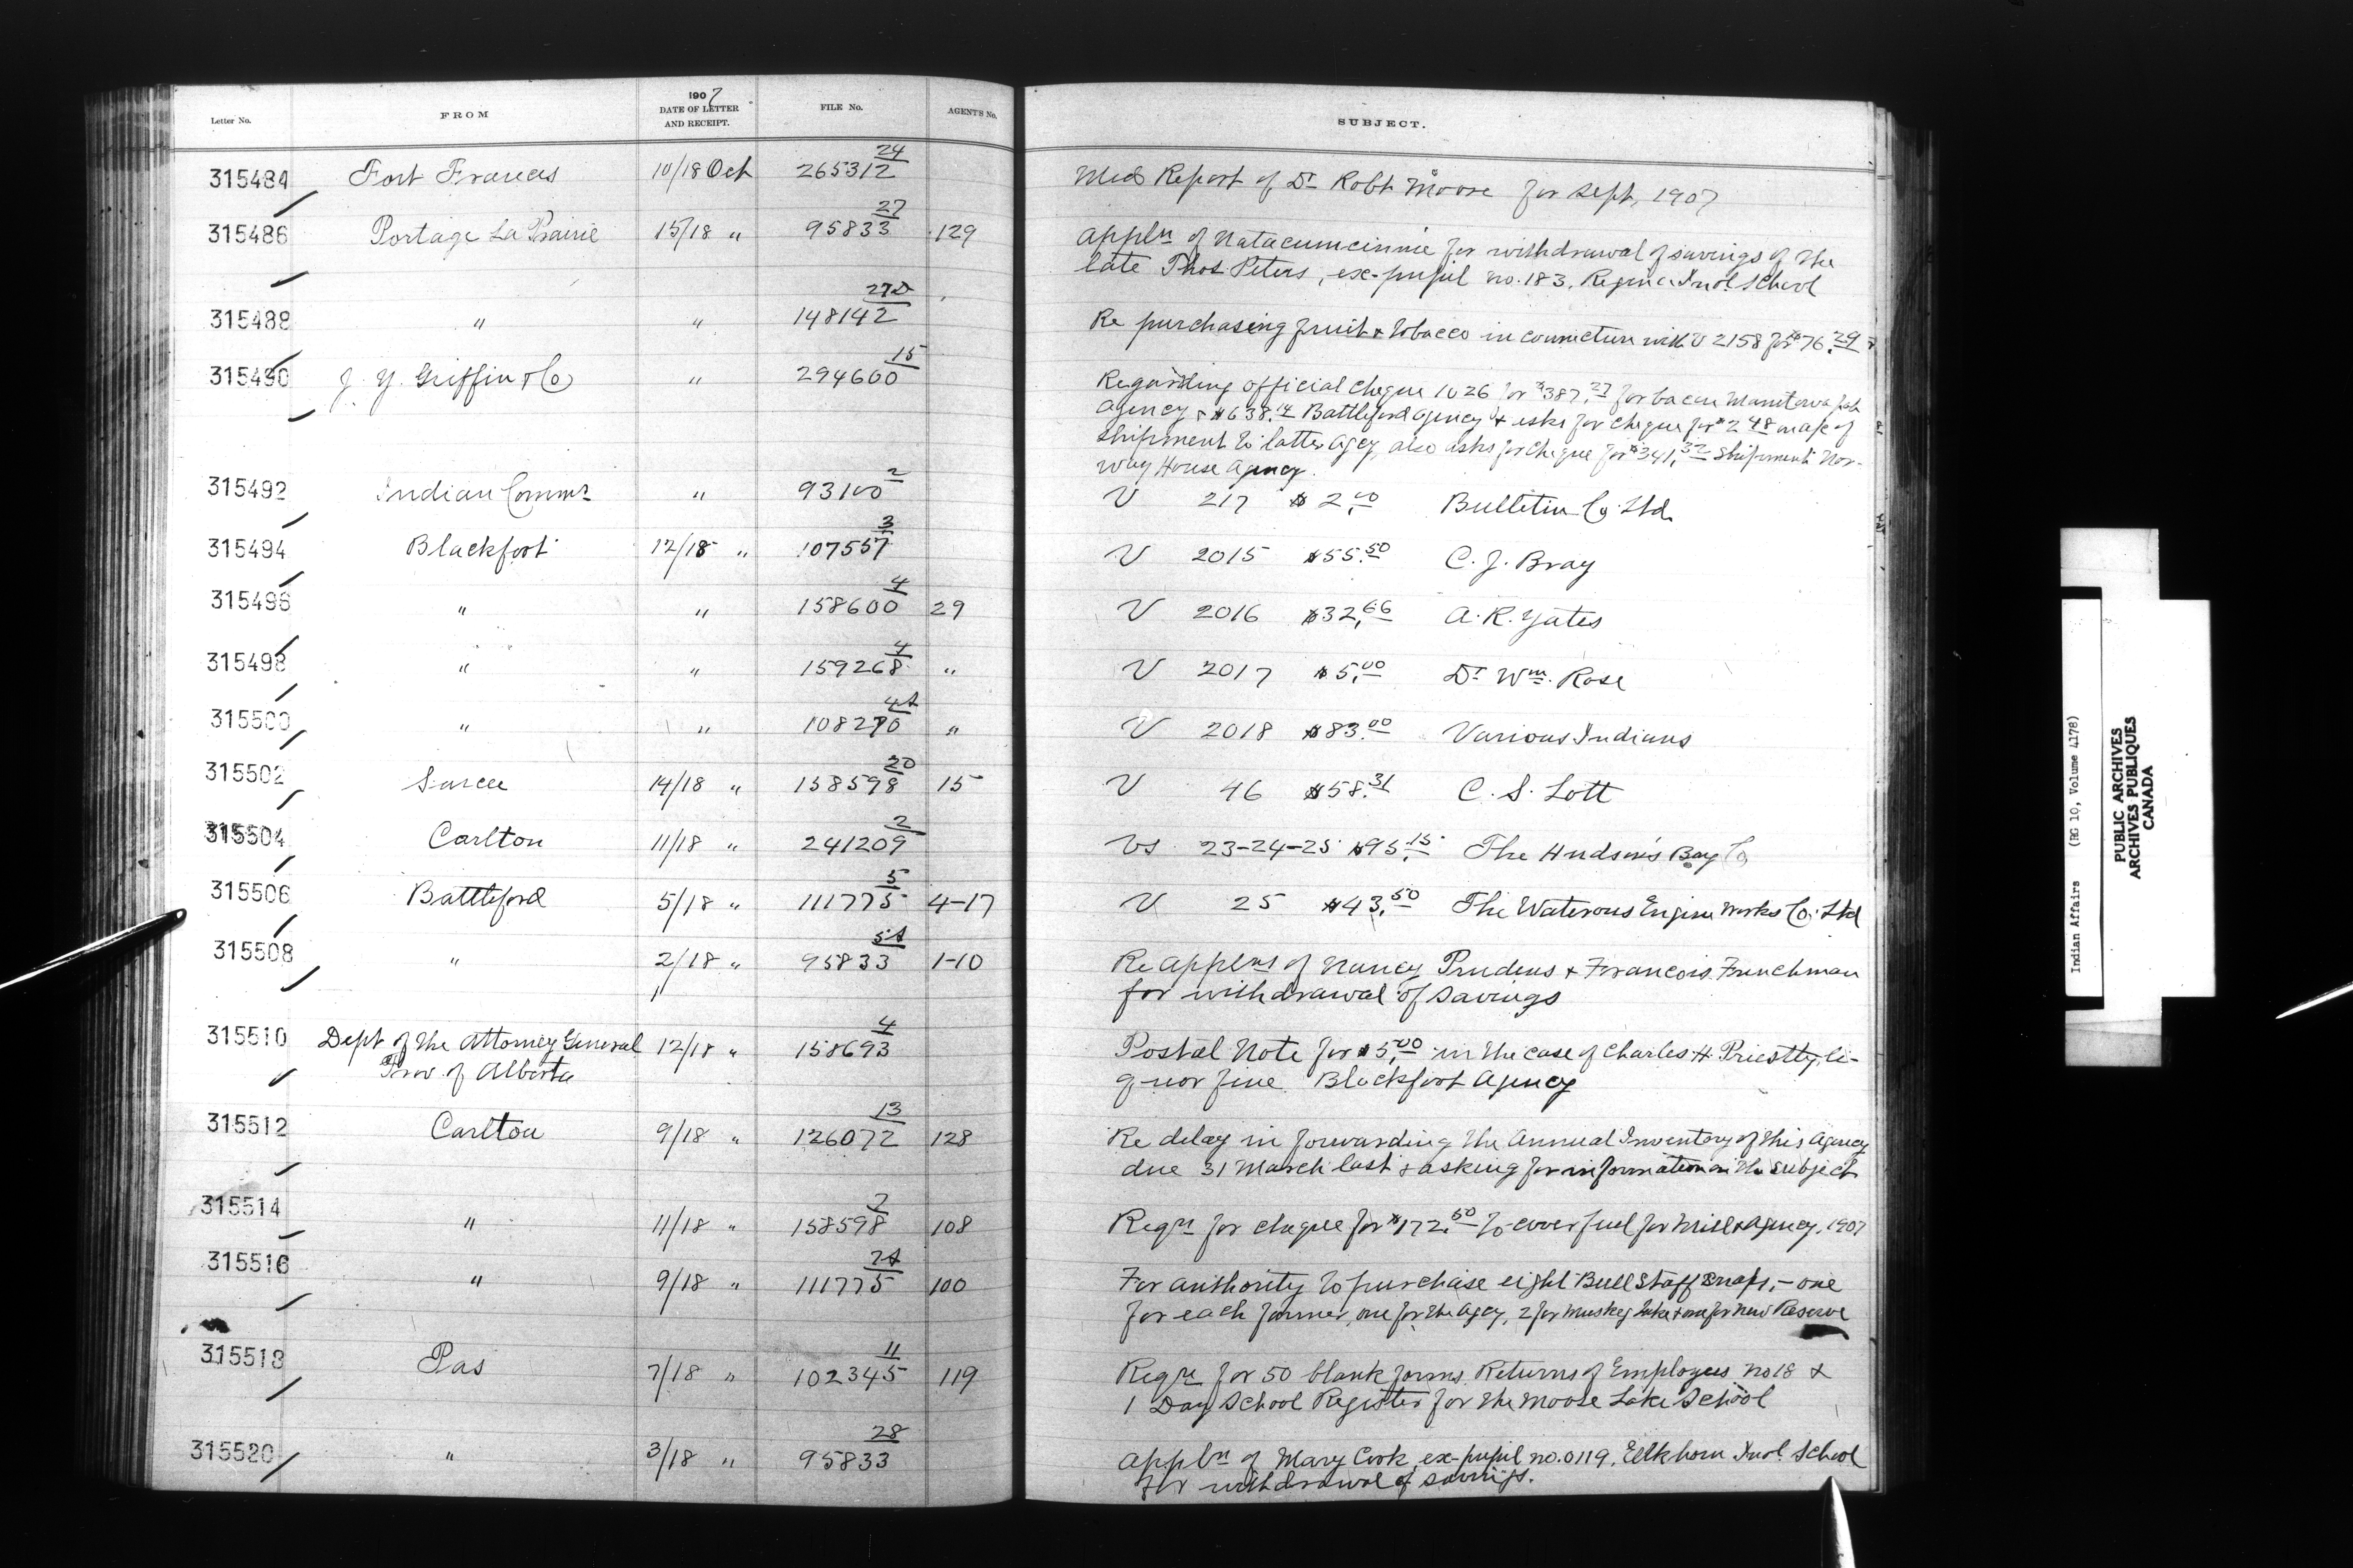 Letter No. FROM 1907 DATE OF LETTER AND RECEIPT. FILE No. AGENT'S No. SUBJECT.
315484 Fort Frances 10/18 Oct 265312 24 Med Report of Dr Robt Moore for Sept, 1907
315486 Portage La Prairie 15/18 " 95833 27 129 Appln of Natacumcinnie for withdrawal of savings of the
late Thos. Peters, ex-pupil no. 183, Regina Indl School
315488 " " 148142 27D Re purchasing fruit & tobacco in connection with V 2158 for $76.29
315490 J. Y. Griffin & Co " 294600 15 Regarding official cheque 1026 for $387.27 for bacon Manitowapah
Agency & $638.14 Battleford Agency & asks for cheque for $2.48 on a/c of
Shipment to latter Agcy, also asks for cheque for $341.32 Shipment Nor-
way House Agency.
315492 Indian Commr " 93100 2 V 217 $2.00 Bulletin Co. Ltd.
315494 Blackfoot 12/18 " 107557 3 V 2015 $55.50 C. J. Bray
315496 " " 158600 4 29 V 2016 $32.66 A. R. Yates
315498 " " 159268 4 " V 2017 $5.00 Dr Wm. Rose
315500 " " 108270 4A " V 2018 $83.00 Various Indians
315502 Sarcee 14/18 " 158598 20 15 V 46 $58.31 C. S. Lott
315504 Carlton 11/18 " 241209 2 Vs 23-24-25 $95.15 The Hudson's Bay Co
315506 Battleford 5/18 " 111775 5 4-17 V 25 $43.50 The Waterous Engine Works Co. Ltd
315508 " 2/18 " 95833 5A 1-10 Re Applns of Nancy Prudens & Francois Frenchman
for withdrawal of savings
315510 Dept of the Attorney General 12/18 " 158693 4 Postal Note for $5.00 in the case of Charles H. Priestly, li-
Prov. of Alberta quor fine Blackfoot Agency
315512 Carlton 9/18 " 126072 13 128 Re delay in forwarding the Annual Inventory of this Agency
due 31 March last & asking for information on the subject
315514 " 11/18 " 158598 2 108 Reqn for cheque for $172.50 to cover fuel for Mill & Agency, 1907
315516 " 9/18 " 111775 2A 100 For authority to purchase eight Bull Staff snaps, - one
for each farmer, one for the Agcy, 2 for Muskeg Lake & one for New Reserve
315518 Pas 7/18 " 102345 11 119 Reqn for 50 blank forms, Returns of Employees no 18 &
1 Day School Register for the Moose Lake School
315520 " 3/18 " 95833 28 Appln of Mary Cook, ex-pupil no. 0119, Elkhorn Indl School
for withdrawal of savings.
Indian Affairs (RG 10, Volume 4178)
PUBLIC ARCHIVES
ARCHIVES PUBLIQUES
CANADA